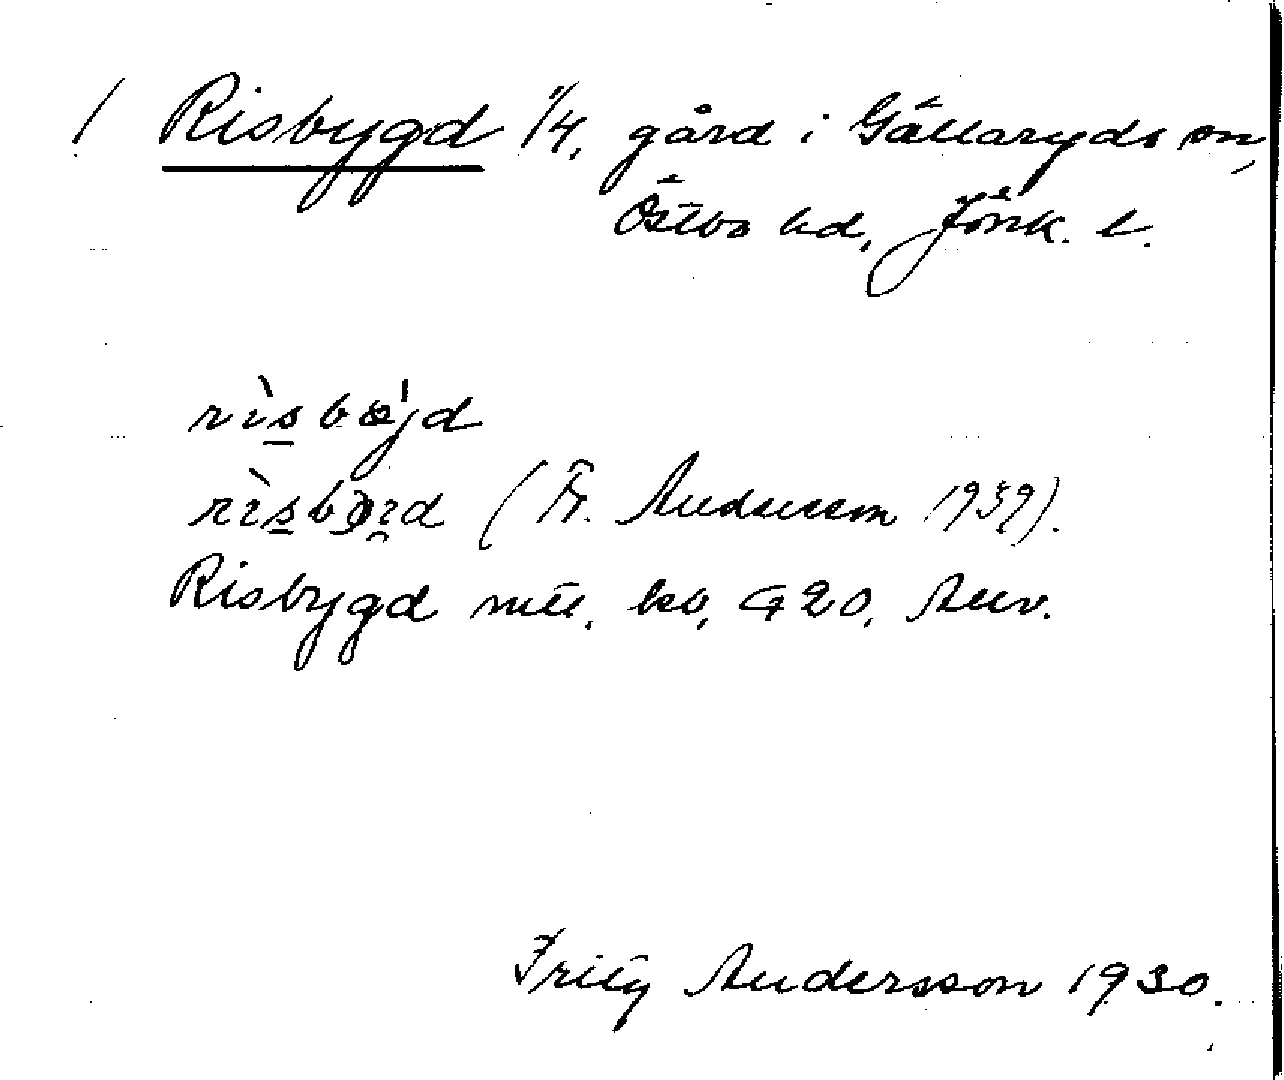 / Risbygd 1/4, gård i Gällaryds sn,
Östbo hd, Jönk. l.
rìsbøjd
rìsb (Fr. Andersson 1939).
Risbygd mtl. ko, G20, Anv.
Fritz Andersson 1930.